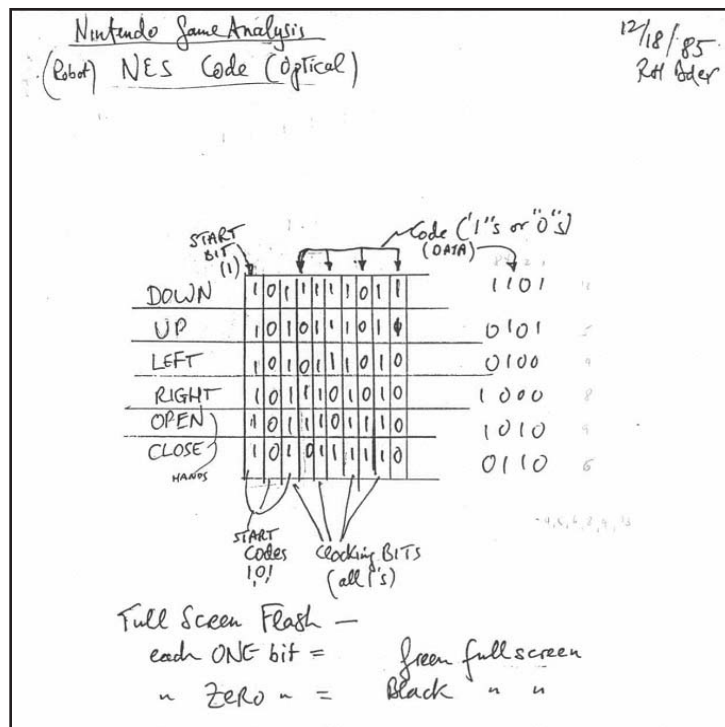 Nintendo Game Analysis
(Robot) NES Code (Optical)
12/18/85
START
BIT
(1)
Code ("1"s or "0"s)
(DATA)
DOWN 1 0 1 1 1 1 1 0 1 1 1101
UP 1 0 1 0 1 1 1 0 1 0101
LEFT 1 0 1 0 1 1 1 0 1 0 0100
RIGHT 1 0 1 1 1 0 1 0 1 0 1000
OPEN 1 0 1 1 1 0 1 1 1 0 1010
CLOSE 1 0 1 0 1 1 1 1 1 0 0110
HANDS
START
Codes
101
Clocking BITS
(all 1's)
Full Screen Flash —
each ONE bit = Green full screen
" ZERO " = Black " "